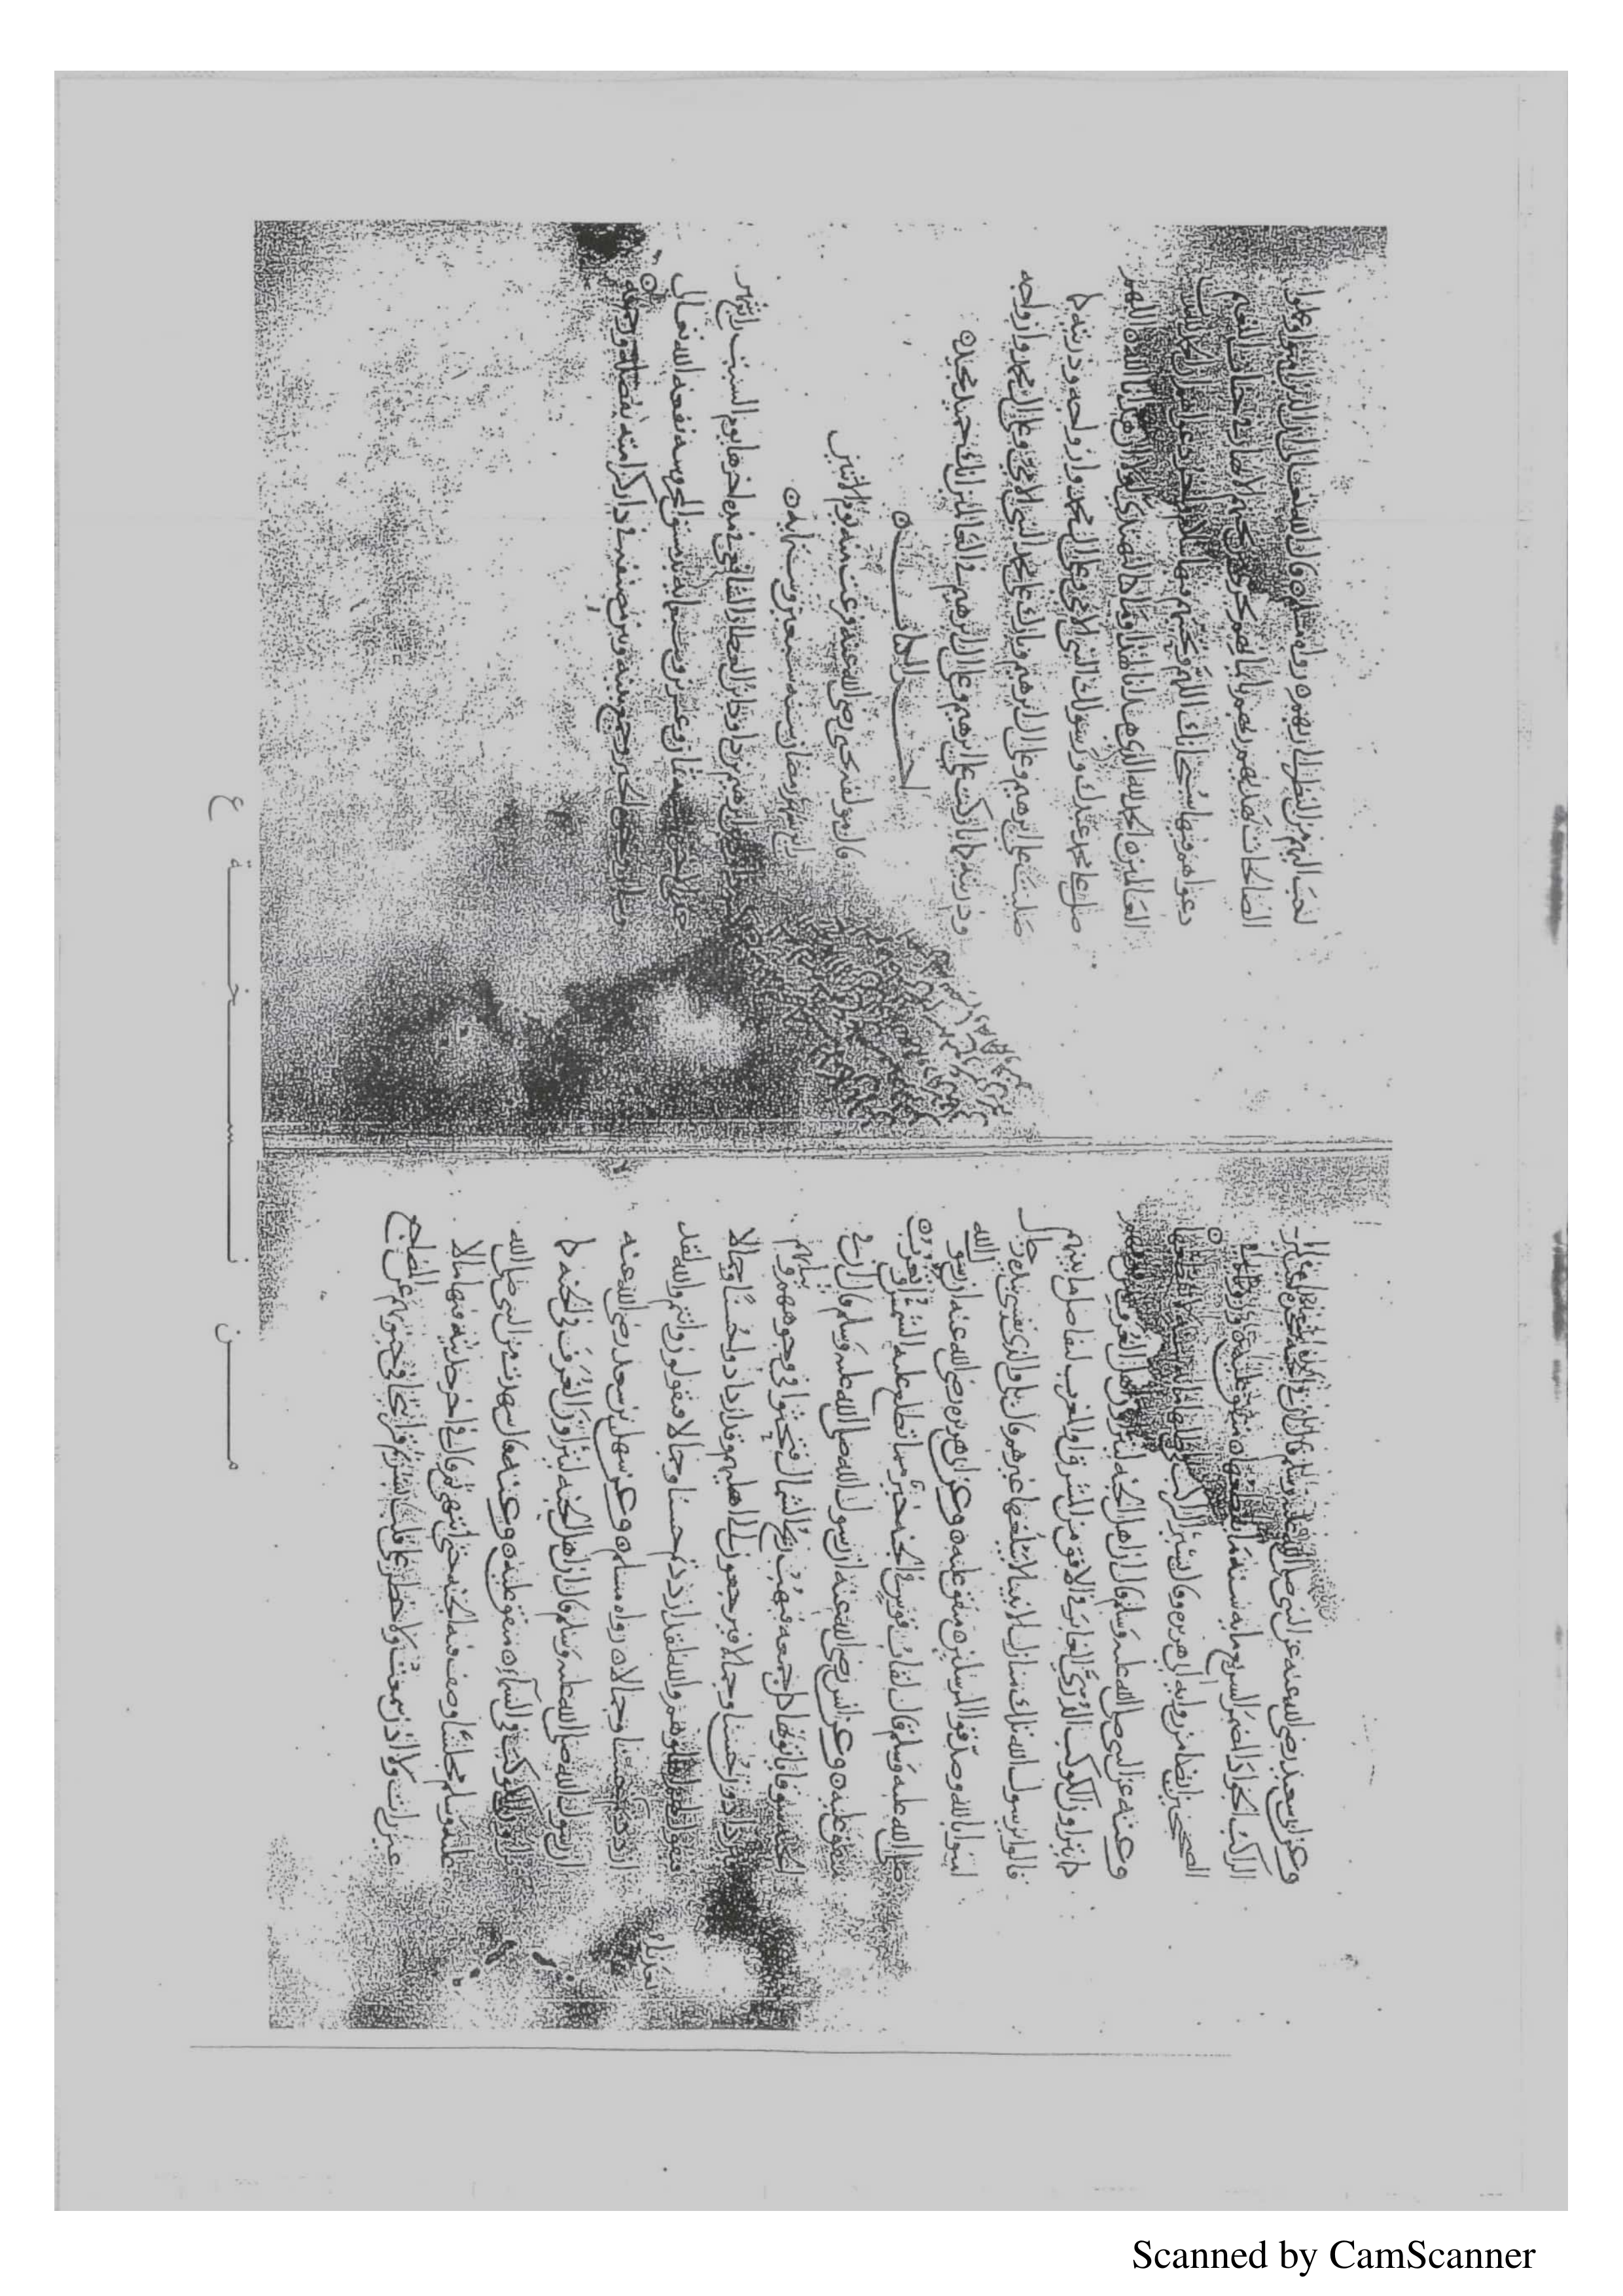 وعن ابي سعيد رضي الله عنه عن النبي صلى الله عليه وسلم قال ان في الجنة شجرة يسير
الراكب الجواد المضمر السريع مايه سنة ما يقطعها متفق عليه
الصحيحين ايضا من روايه ابي هريره قال يسير الراكب في ظلها مايه سنة ما يقطعها
وعنه عن النبي صلى الله عليه وسلم قال ان اهل الجنة ليتراون اهل الغرف من فوقهم
كما تتراون الكوكب الدري الغابر في الافق من المشرق او المغرب لتفاضل ما بينهم
قالوا يرسول الله تلك منازل الانبيا لا يبلغها غيرهم قال بلى والذي نفسي بيده رجال
امنوا بالله وصدقوا المرسلين متفق عليه وعن ابي هريره رضي الله عنه ان رسول الله
صلى الله عليه وسلم قال لقاب قوس في الجنة خير مما تطلع عليه الشمس او تغرب
متفق عليه وعن انس رضي الله عنه ان رسول الله صلى الله عليه وسلم قال ان في
الجنة سوقا ياتونها كل جمعة فتهب ريح الشمال فتحثوا في وجوههم وثيابهم
فيزدادون حسنا وجمالا فيرجعون الى اهليهم وقد ازدادوا حسنا وجمالا
فيقول لهم اهلوهم والله لقد ازددتم حسنا وجمالا فيقولون وانتم والله لقد
ازددتم بعدنا حسنا وجمالا رواه مسلم وعن سهل بن سعد رضي الله عنه
ان رسول الله صلى الله عليه وسلم قال ان اهل الجنة ليتراون الغرف في الجنة كما
تتراون الكوكب في السماء متفق عليه وعنه قال شهدت من النبي صلى الله
عليه وسلم مجلسا وصف فيه الجنة حتى انتهى ثم قال في اخر حديثه فيها ما لا
عين رات ولا اذن سمعت ولا خطر على قلب بشر ثم قرا تتجافى جنوبهم عن المضاجع
احب اليهم من النظر الى ربهم رواه مسلم قال الله تعالى ان الذين امنوا وعملوا
الصالحات يهديهم ربهم بايمانهم تجري من تحتهم الانهار في جنات النعيم
دعواهم فيها سبحانك اللهم وتحيتهم فيها سلام واخر دعواهم ان الحمد لله رب
العالمين الحمد لله الذي هدانا لهذا وما كنا لنهتدي لولا ان هدانا الله اللهم
صل على محمد عبدك ورسولك النبي الامي وعلى ال محمد وازواجه وذريته كما
صليت على ابرهيم وعلى ال ابرهيم وبارك على محمد النبي الامي وعلى ال محمد وازواجه
وذريته كما باركت على ابرهيم وعلى ال ابرهيم في العالمين انك حميد مجيد
اخر الكتاب
قال مولفه يحيى رضي الله عنه فرغت منه يوم الاثنين
رابع شهر رمضان سنة سبعين وستمايه
ابرهيم بن داود بن العطار الشافعي في مده اخرها يوم السبت رابع شهر
ثمان وعشرين نفعه الله تعالى
وجمع بينه وبين مصنفه في دار كرامته بفضله ورحمته
من نسخة ع
Scanned by CamScanner